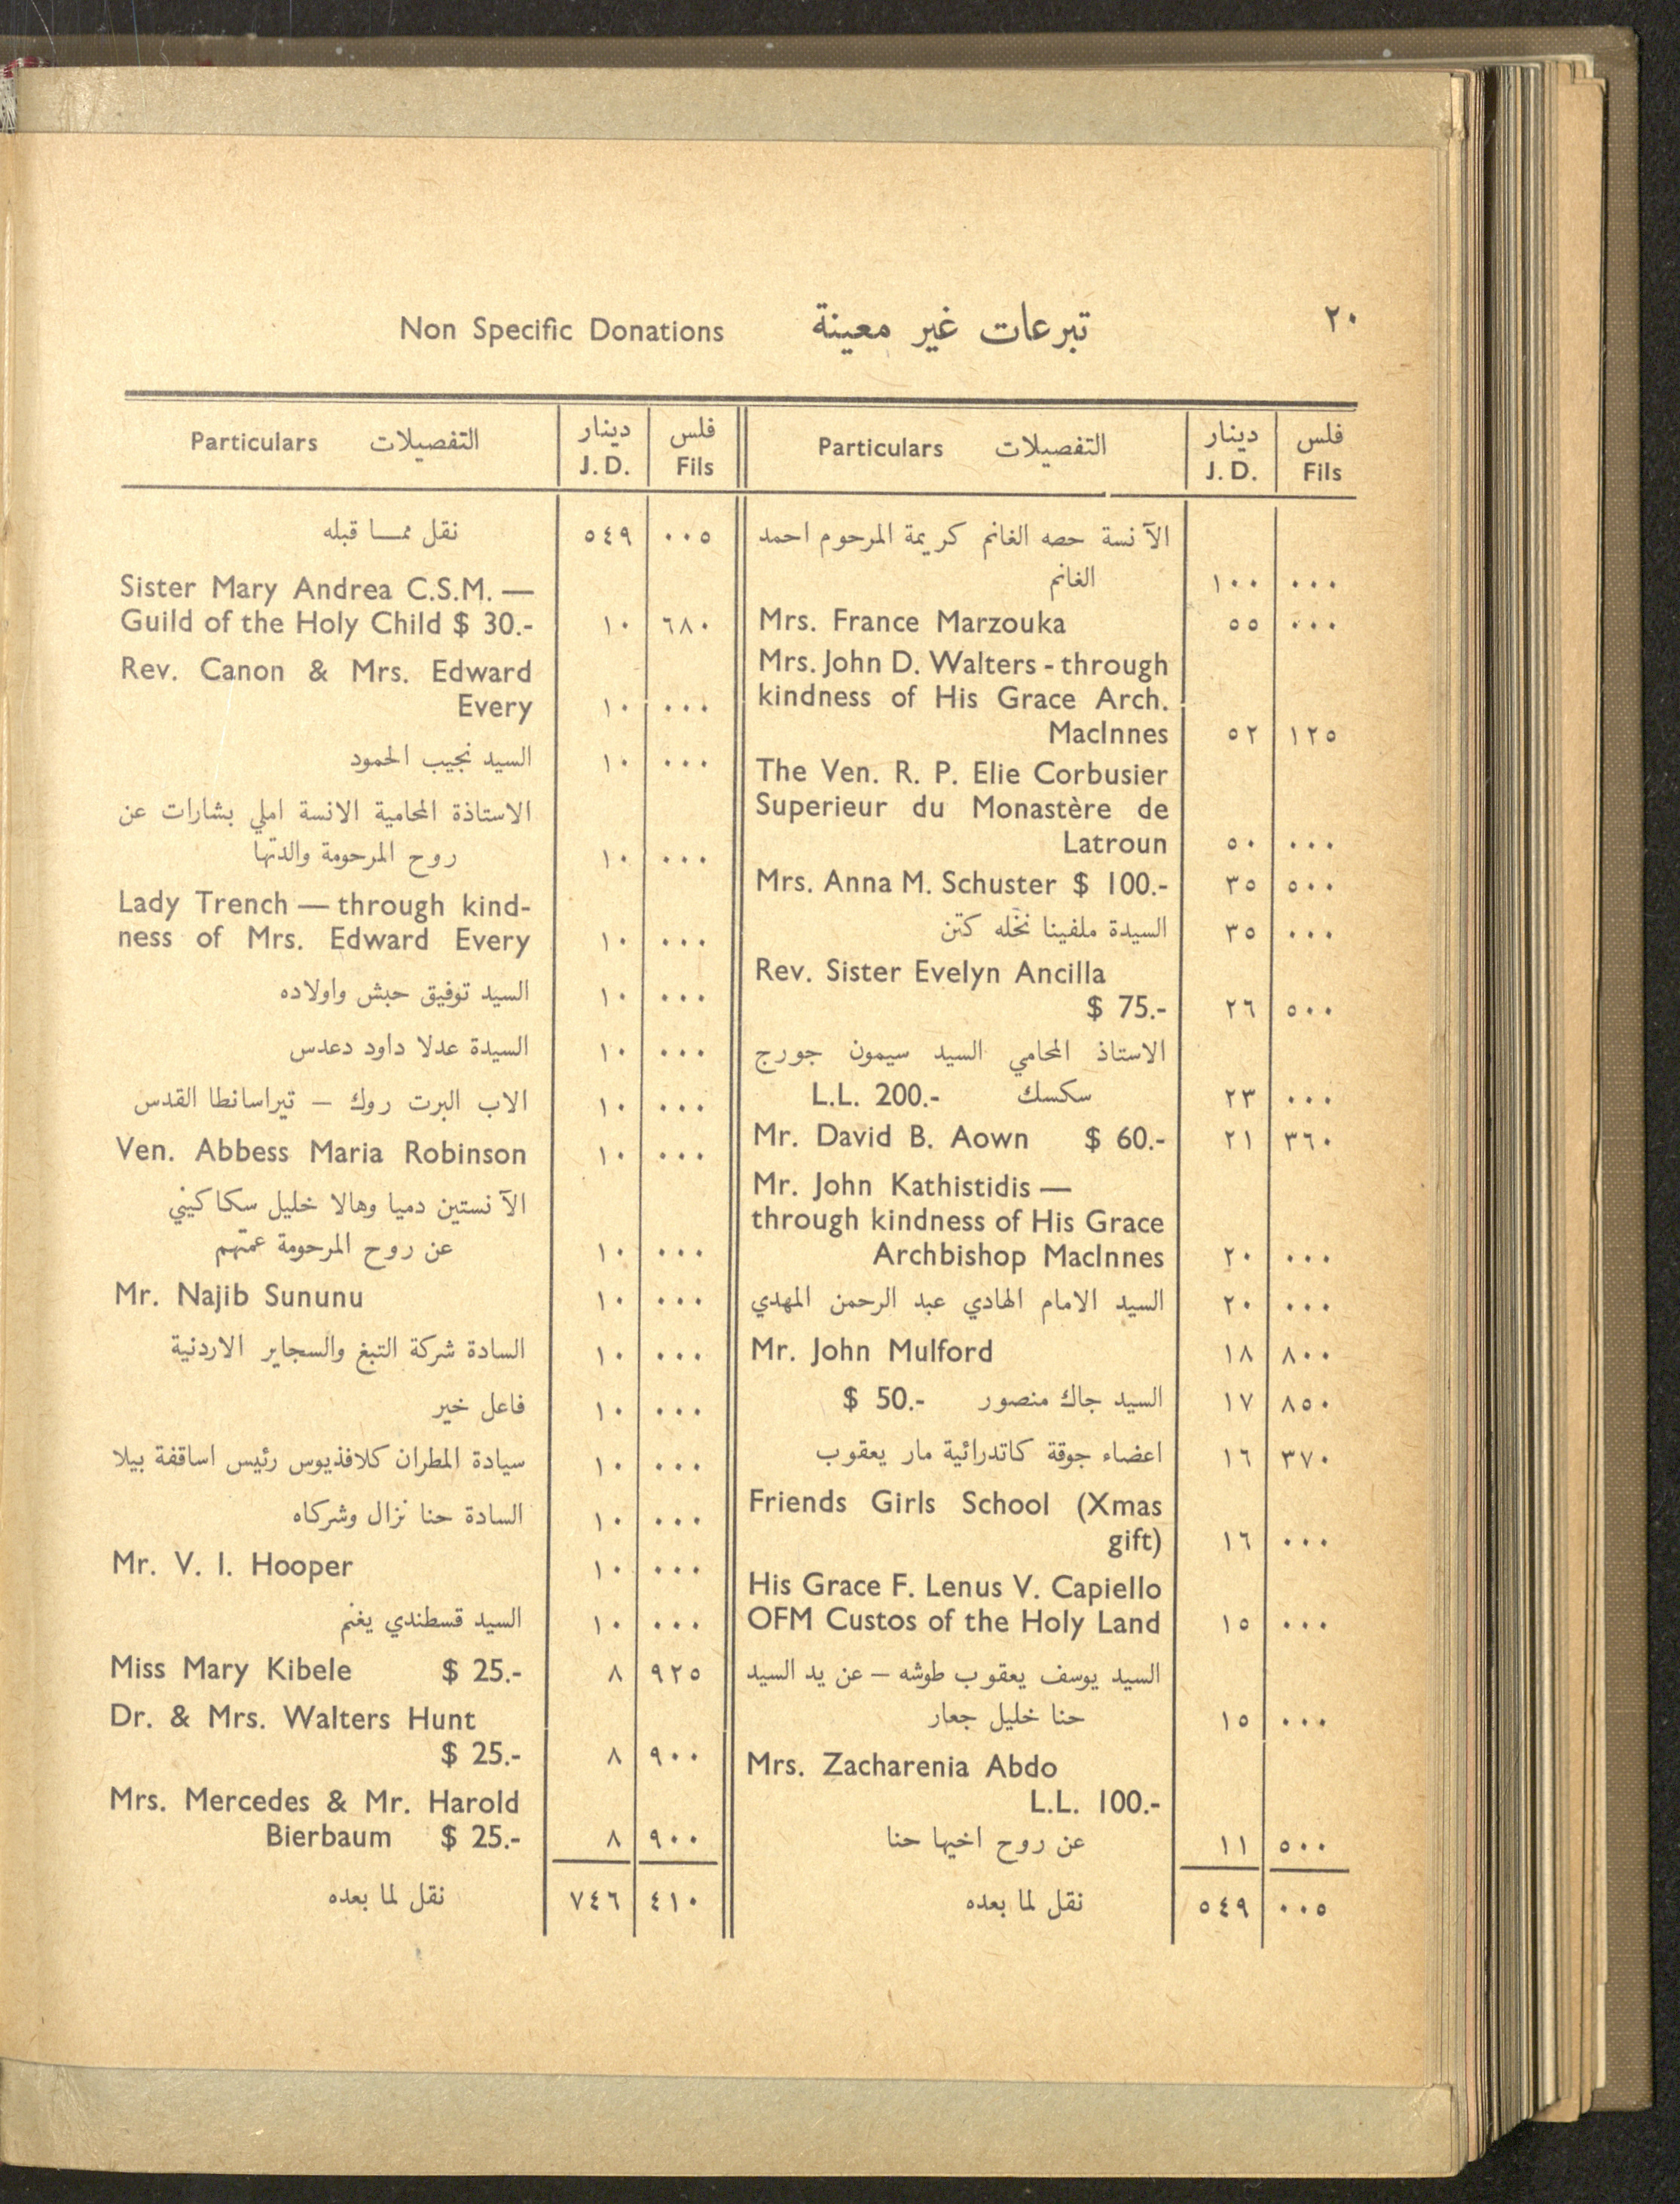 Non Specific Donations تبرعات غير معينة ٢٠
Particulars التفصيلات دينار J. D. فلس Fils
الآنسة حصه الغانم كريمة المرحوم احمد
الغانم ١٠٠ ٠٠٠
Mrs. France Marzouka ٥٥ ٠٠٠
Mrs. John D. Walters - through
kindness of His Grace Arch.
MacInnes ٥٢ ١٢٥
The Ven. R. P. Elie Corbusier
Superieur du Monastère de
Latroun ٥٠ ٠٠٠
Mrs. Anna M. Schuster $ 100.- ٣٥ ٥٠٠
السيدة ملفينا نخله كتن ٣٥ ٠٠٠
Rev. Sister Evelyn Ancilla
$ 75.- ٢٦ ٥٠٠
الاستاذ المحامي السيد سيمون جورج
سكسك L.L. 200.- ٢٣ ٠٠٠
Mr. David B. Aown $ 60.- ٢١ ٣٦٠
Mr. John Kathistidis —
through kindness of His Grace
Archbishop MacInnes ٢٠ ٠٠٠
السيد الامام الهادي عبد الرحمن المهدي ٢٠ ٠٠٠
Mr. John Mulford ١٨ ٨٠٠
السيد جاك منصور $ 50.- ١٧ ٨٥٠
اعضاء جوقة كاتدرائية مار يعقوب ١٦ ٣٧٠
Friends Girls School (Xmas
gift) ١٦ ٠٠٠
His Grace F. Lenus V. Capiello
OFM Custos of the Holy Land ١٥ ٠٠٠
السيد يوسف يعقوب طوشه – عن يد السيد
حنا خليل جعار ١٥ ٠٠٠
Mrs. Zacharenia Abdo
L.L. 100.-
عن روح اخيها حنا ١١ ٥٠٠
نقل لما بعده ٥٤٩ ٠٠٥
Particulars التفصيلات دينار J. D. فلس Fils
نقل ممـا قبله ٥٤٩ ٠٠٥
Sister Mary Andrea C.S.M. —
Guild of the Holy Child $ 30.- ١٠ ٦٨٠
Rev. Canon & Mrs. Edward
Every ١٠ ٠٠٠
السيد نجيب الحمود ١٠ ٠٠٠
الاستاذة المحامية الانسة املي بشارات عن
روح المرحومة والدتها ١٠ ٠٠٠
Lady Trench — through kind-
ness of Mrs. Edward Every ١٠ ٠٠٠
السيد توفيق حبش واولاده ١٠ ٠٠٠
السيدة عدلا داود دعدس ١٠ ٠٠٠
الاب البرت روك – تيراسانطا القدس ١٠ ٠٠٠
Ven. Abbess Maria Robinson ١٠ ٠٠٠
الآنستين دميا وهالا خليل سكاكيني
عن روح المرحومة عمتهم ١٠ ٠٠٠
Mr. Najib Sununu ١٠ ٠٠٠
السادة شركة التبغ والسجاير الاردنية ١٠ ٠٠٠
فاعل خير ١٠ ٠٠٠
سيادة المطران كلافذيوس رئيس اساقفة بيلا ١٠ ٠٠٠
السادة حنا نزال وشركاه ١٠ ٠٠٠
Mr. V. I. Hooper ١٠ ٠٠٠
السيد قسطندي يغنم ١٠ ٠٠٠
Miss Mary Kibele $ 25.- ٨ ٩٢٥
Dr. & Mrs. Walters Hunt
$ 25.- ٨ ٩٠٠
Mrs. Mercedes & Mr. Harold
Bierbaum $ 25.- ٨ ٩٠٠
نقل لما بعده ٧٤٦ ٤١٠